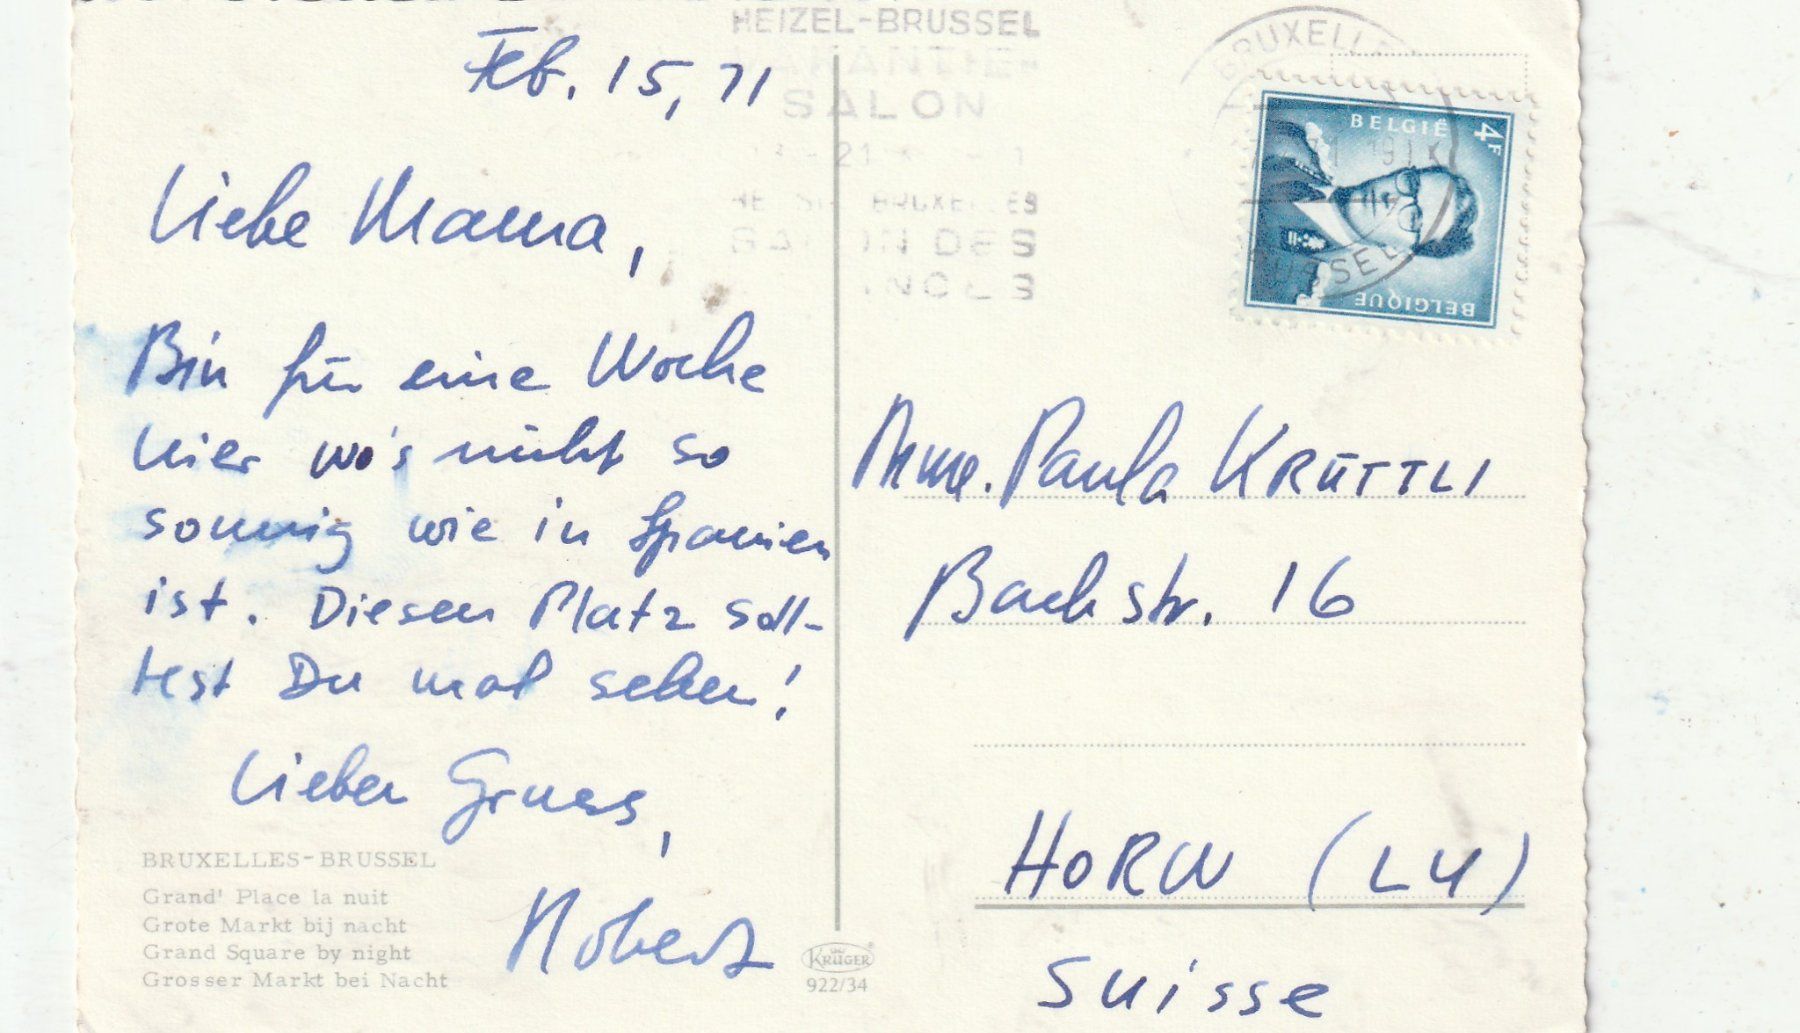 HEIZEL-BRUSSEL
SALON
BRUXELLES
Feb. 15, 71
Liebe Mama,
Bin für eine Woche
hier wo's nicht so
sonnig wie in Spanien
ist. Diesen Platz soll-
test Du mal sehen!
Lieber Gruss,
Robert
BRUXELLES-BRUSSEL
Grand' Place la nuit
Grote Markt bij nacht
Grand Square by night
Grosser Markt bei Nacht
KRÜGER
922/34
BELGIË
4F
BELGIQUE
Mme. Paula KRÜTTLI
Bachstr. 16
HORW (LU)
Suisse